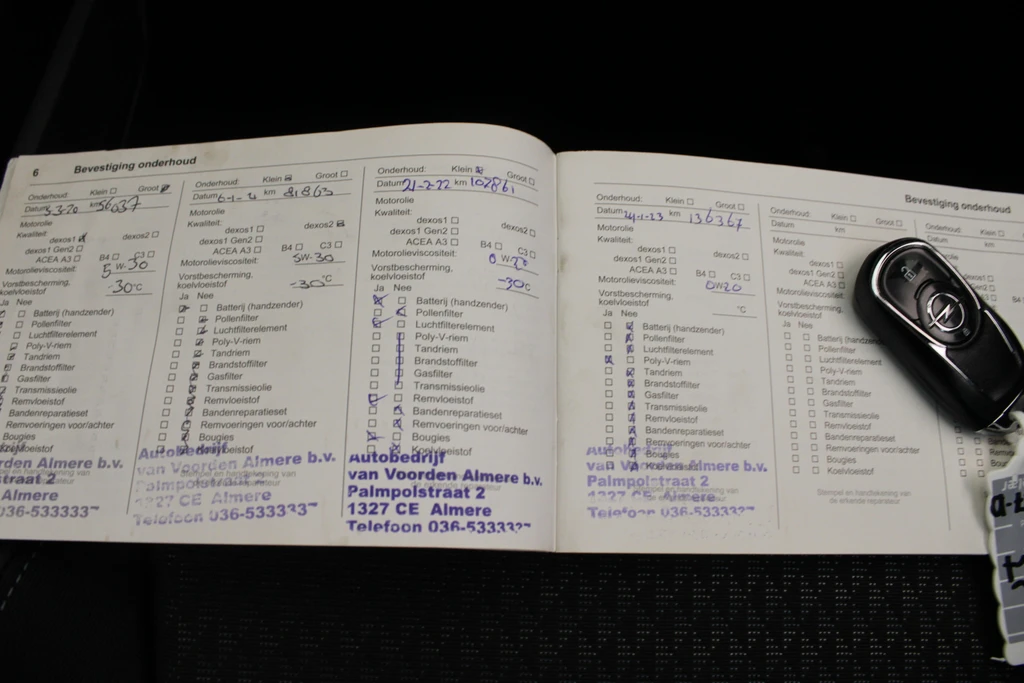 6 Bevestiging onderhoud
Onderhoud: Klein Groot
Datum 3-3-20 km 56037
Motorolie
Kwaliteit:
dexos1 dexos2
dexos1 Gen2
ACEA A3 B4 C3
Motorolieviscositeit: 5W-30
Vorstbescherming, koelvloeistof -30°C
Ja Nee
Batterij (handzender)
Pollenfilter
Luchtfilterelement
Poly-V-riem
Tandriem
Brandstoffilter
Gasfilter
Transmissieolie
Remvloeistof
Bandenreparatieset
Remvoeringen voor/achter
Bougies
Almere b.v.
Almere
036-533333
Onderhoud: Klein Groot
Datum 6-1- km 81863
Motorolie
Kwaliteit:
dexos1 dexos2
dexos1 Gen2
ACEA A3 B4 C3
Motorolieviscositeit: 5W-30
Vorstbescherming, koelvloeistof -30°C
Ja Nee
Batterij (handzender)
Pollenfilter
Luchtfilterelement
Poly-V-riem
Tandriem
Brandstoffilter
Gasfilter
Transmissieolie
Remvloeistof
Bandenreparatieset
Remvoeringen voor/achter
Bougies
Autobedrijf
van Voorden Almere b.v.
Palmpolstraat 2
1327 CE Almere
Telefoon 036-533333
Onderhoud: Klein Groot
Datum 21-2-22 km 102861
Motorolie
Kwaliteit:
dexos1 dexos2
dexos1 Gen2
ACEA A3 B4 C3
Motorolieviscositeit: 0W-20
Vorstbescherming, koelvloeistof -30°C
Ja Nee
Batterij (handzender)
Pollenfilter
Luchtfilterelement
Poly-V-riem
Tandriem
Brandstoffilter
Gasfilter
Transmissieolie
Remvloeistof
Bandenreparatieset
Remvoeringen voor/achter
Bougies
Koelvloeistof
Autobedrijf
van Voorden Almere b.v.
Palmpolstraat 2
1327 CE Almere
Telefoon 036-533333
Onderhoud: Klein Groot
Datum 24-1-23 km 136367
Motorolie
Kwaliteit:
dexos1 dexos2
dexos1 Gen2
ACEA A3 B4 C3
Motorolieviscositeit: 0W20
Vorstbescherming, koelvloeistof °C
Ja Nee
Batterij (handzender)
Pollenfilter
Luchtfilterelement
Poly-V-riem
Tandriem
Brandstoffilter
Gasfilter
Transmissieolie
Remvloeistof
Bandenreparatieset
Remvoeringen voor/achter
Bougies
Koelvloeistof
van Voorden Almere b.v.
Palmpolstraat 2
1327 CE Almere
Telefoon 036-533333
Bevestiging onderhoud
Onderhoud: Klein Groot
Datum km
Motorolie
Kwaliteit:
dexos1
dexos1 Gen2
ACEA A3
Motorolieviscositeit:
Vorstbescherming, koelvloeistof
Ja Nee
Batterij (handzender)
Pollenfilter
Luchtfilterelement
Poly-V-riem
Tandriem
Brandstoffilter
Gasfilter
Transmissieolie
Remvloeistof
Bandenreparatieset
Remvoeringen voor/achter
Bougies
Koelvloeistof
Stempel en handtekening van
de erkende reparateur